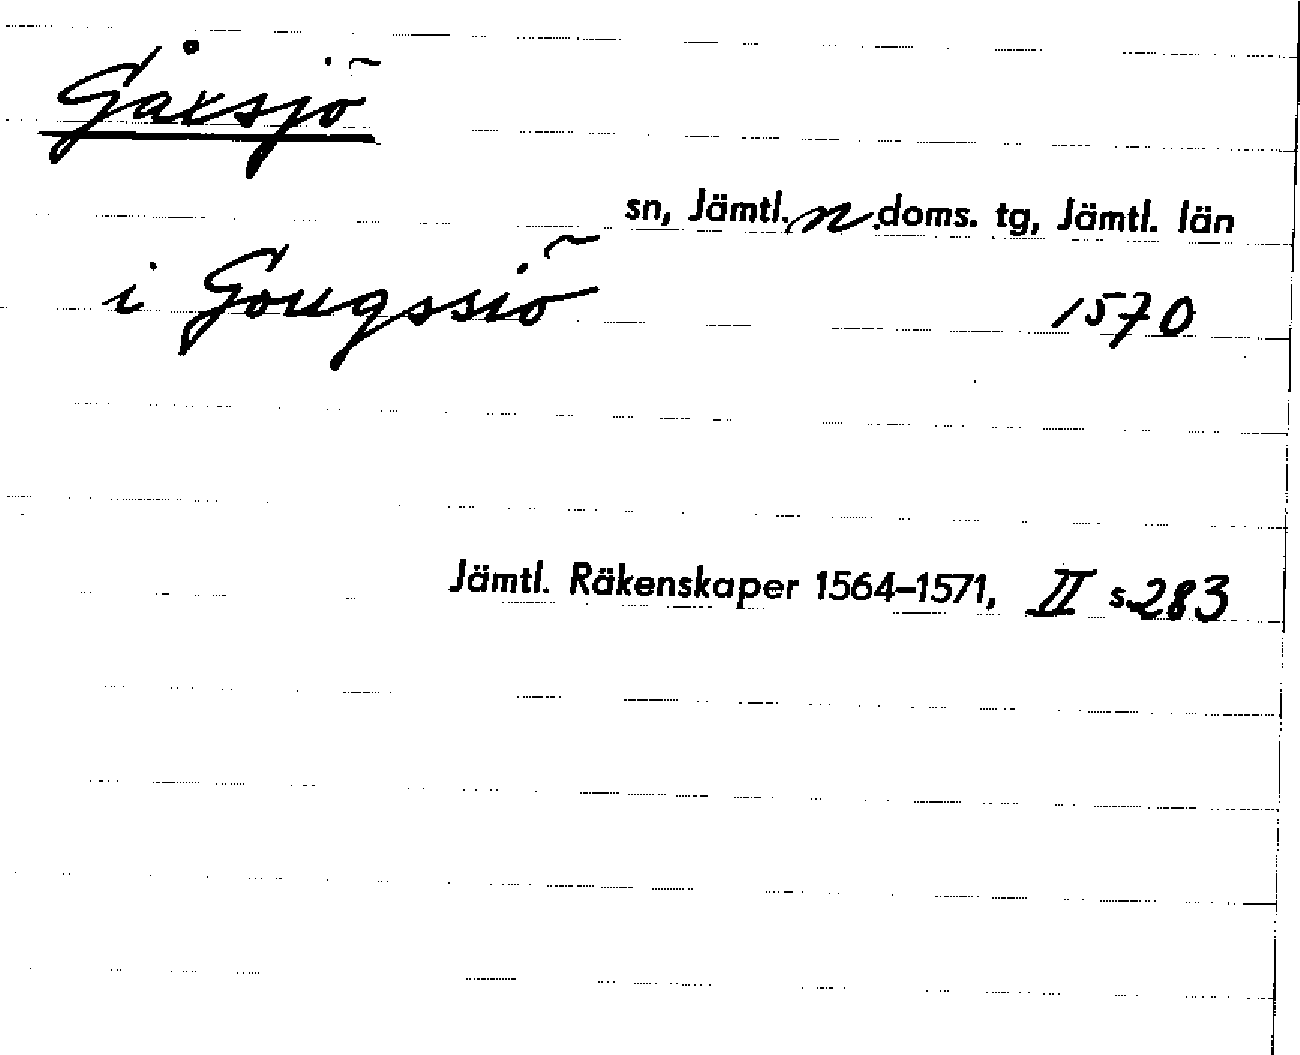 Gåxsjö
sn, Jämtl. n. doms. tg, Jämtl. län
i Gougssiö 1570
Jämtl. Räkenskaper 1564–1571, II s. 283